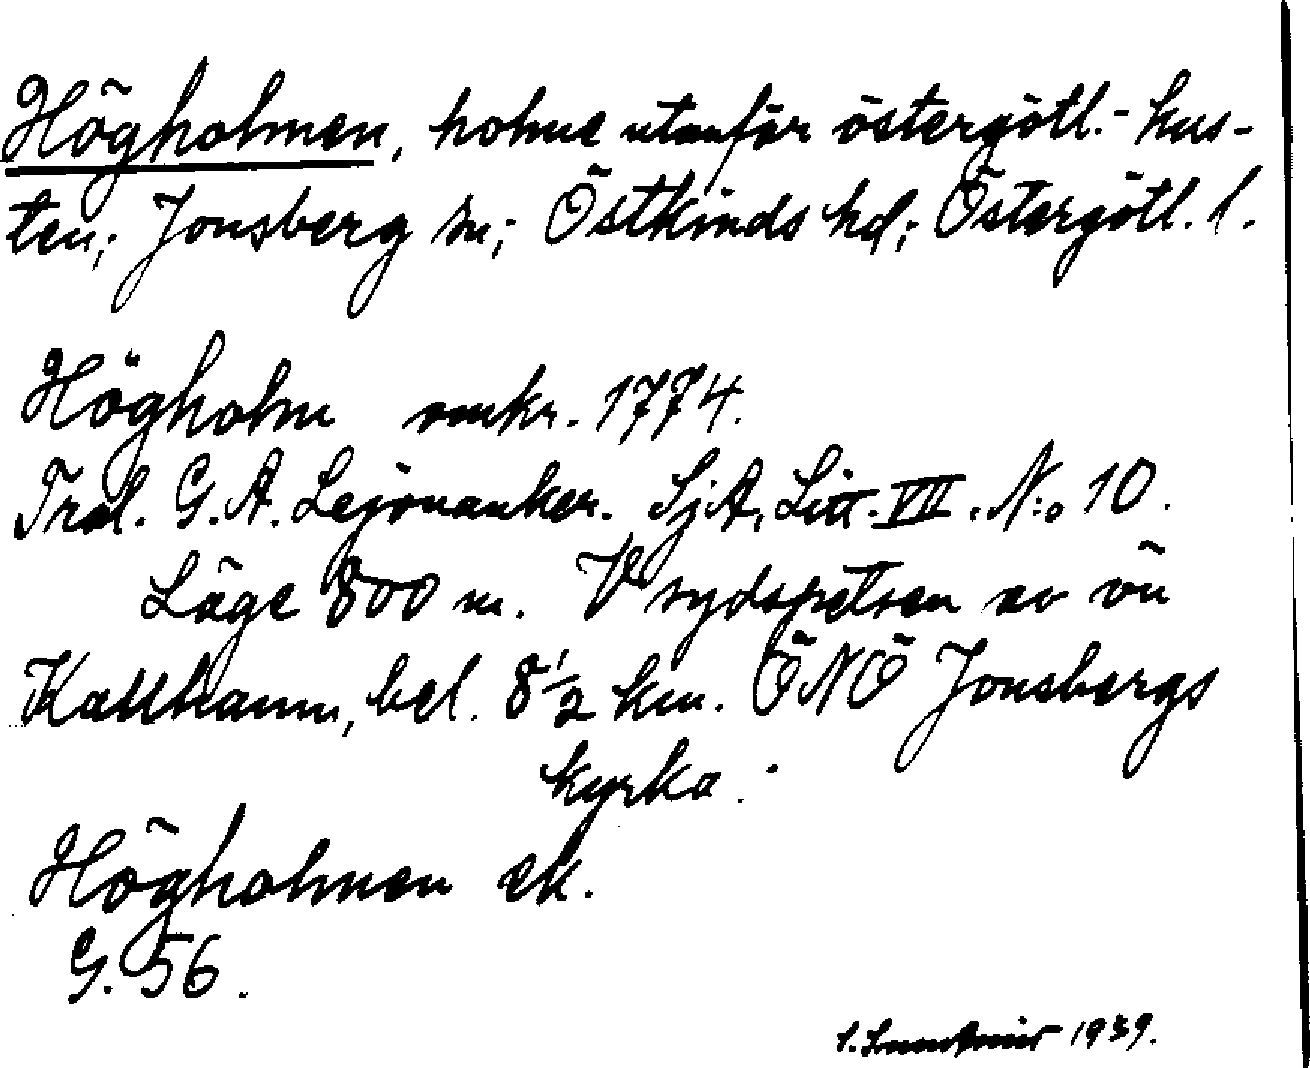 Högholmen, holme utanför östergötl.-kus-
ten; Jonsberg sn; Östkinds hd; Östergötl. l.
Högholm omkr. 1774.
Trol. G. A. Lejonanker. SjA, Litt. VII. N:o 10.
Läge 800 m. V sydspetsen av ön
Kallhamn, bel. 8 1/2 km. ÖNÖ Jonsbergs
kyrka.
Högholmen ek.
G. 56.
1939.